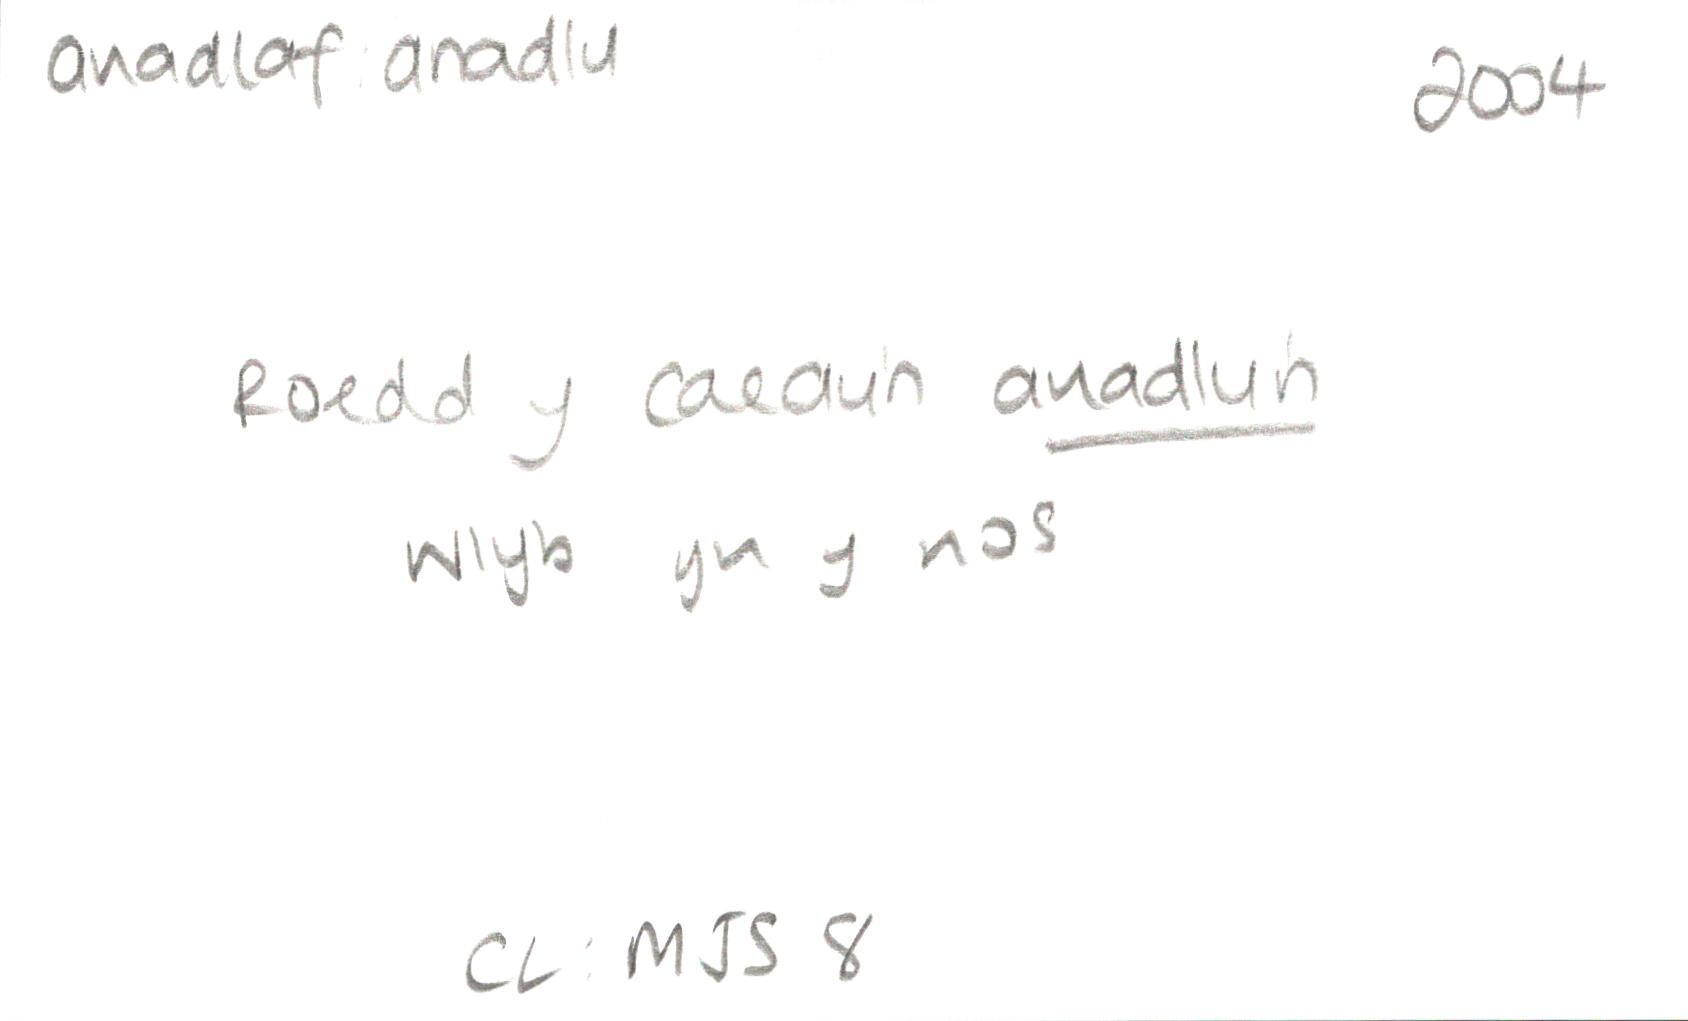 anadlaf: anadlu 2004
Roedd y caeau'n anadlu'n
wlyb yn y nos
CL: MJS 8